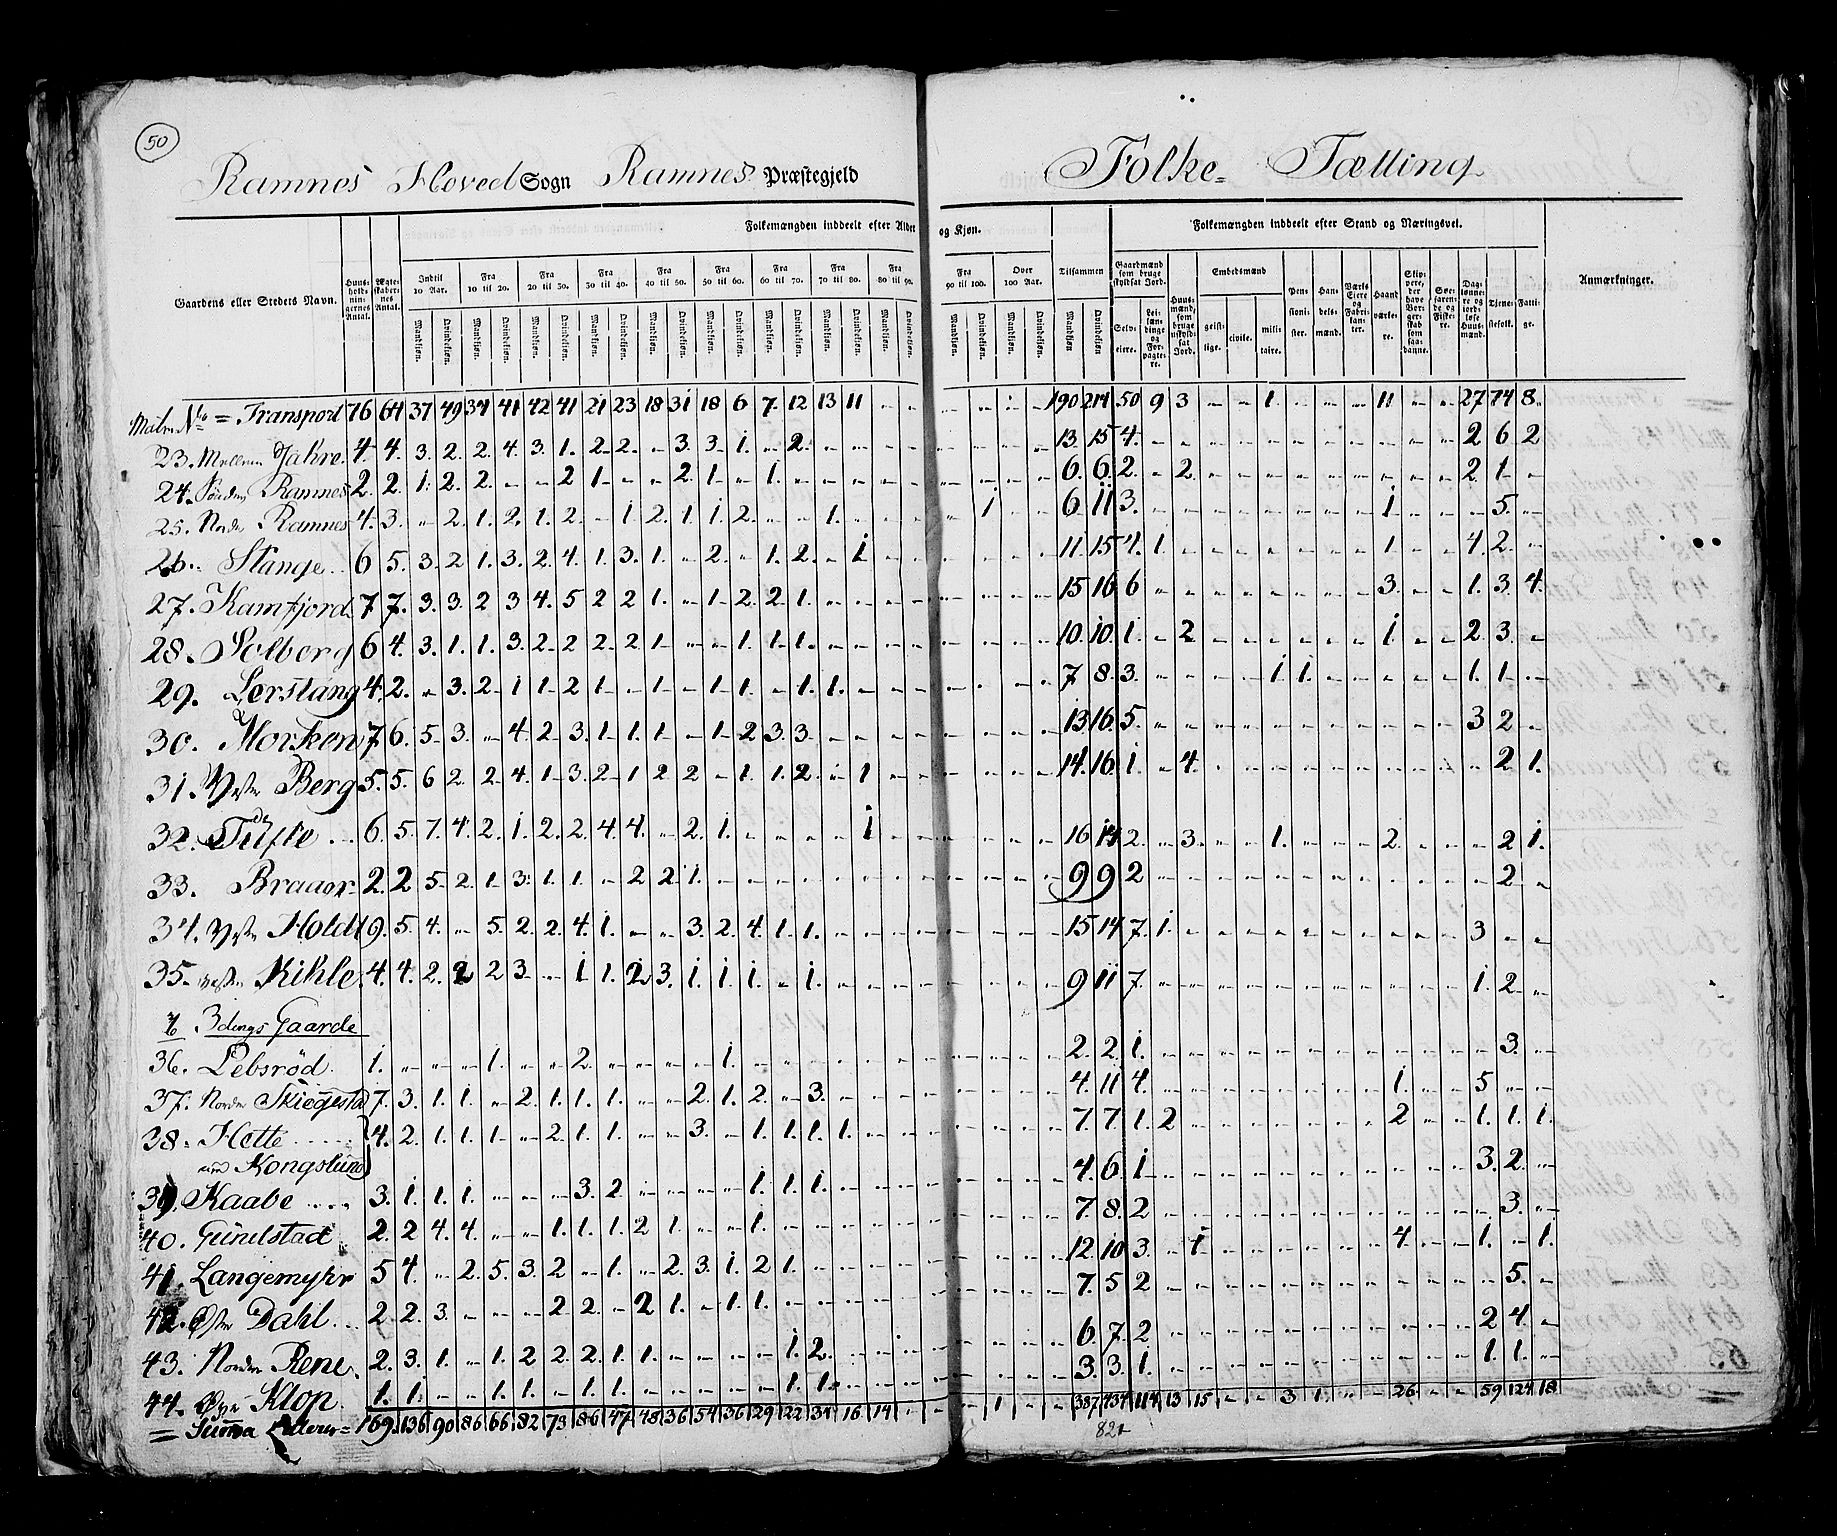 50
Ramnes Hoved Sogn Ramnes Præstegjeld Folke= Tælling
Gaardens eller Stedets Navn. Huusholdningernes Antal. Ægteskabernes Antal. Folkemængden inddeelt efter Alder og Kjøn. Tilsammen Folkemængden inddeelt efter Stand og Næringsvei. Anmærkninger.
Indtil 10 Aar. Fra 10 til 20. Fra 20 til 30. Fra 30 til 40. Fra 40 til 50. Fra 50 til 60. Fra 60 til 70. Fra 70 til 80. Fra 80 til 90. Fra 90 til 100. Over 100 Aar.
Mandkjøn. Qvindekjøn. Mandkjøn. Qvindekjøn. Mandkjøn. Qvindekjøn. Mandkjøn. Qvindekjøn. Mandkjøn. Qvindekjøn. Mandkjøn. Qvindekjøn. Mandkjøn. Qvindekjøn. Mandkjøn. Qvindekjøn. Mandkjøn. Qvindekjøn. Mandkjøn. Qvindekjøn. Mandkjøn. Qvindekjøn. Mandkjøn Qvindekjøn
Gaardmænd som bruge skyldsat Jord. Selveiere. Leilændinge og Forpagtere. Huusmænd, som bruge uskyldsat Jord. Embedsmænd geistlige. civile. militaire. Pensionister. Handelsmænd. Værks Eiere og Fabrikanter. Haandværkere. Skippere, der have Borgerskab som saadanne. Søefarende og Fiskere. Daglønnere og jordløse Huusmænd. Tjenestefolk. Fattige.
Matr. No = Transport 76 64 37 49 34 41 42 41 21 23 18 31 18 6 7. 12 13 11 - - - - - - 190 214 50 9 3 - - 1. - - - 11 - - 27 74 8.
23. Mellem Jahre. 4. 4. 3. 2. 2. 4. 3. 1. 2. 2. - 3. 3. 1. - 2. - - - - - - - - 13. 15 4. - - - - - - - - - - - 2 6 2
24. Sönder Ramnes 2. 2. 1. 2. 2. - - 2 1 - - 2. 1. - 1. - - - - - - - - - 6. 6. 2. - 2. - - - - - - - - - 2 1. -
25. Norder Ramnes 4. 3. - 2. 1. 2. 1. 2. - 1. 2. 1. 1. 2. - - 1. - - - - 1 - - 6 11 3. - - - - - - - - 1 - - - 5. -
26. Stange 6 5. 3. 2 1. 3. 2. 4. 1. 3. 1. - 2. - 1. 2. - 1 - - - - - - 11. 15 4. 1. - - - - - - - 1. - - 4. 2. -
27. Kamfjord 7 7. 3. 3. 2 3 4. 5 2 2 1. - 1. 2. 2. 1. - - - - - - - - 15 16 6 - - - - - - - - 3. - - 1. 3. 4.
28. Solberg 6 4. 3. 1. 1. 3. 2. 2. 2. 2. 1. - - 1. 1. 1. - - - - - - - - 10. 10. 1. - 2 - - - - - - 1 - - 2. 3. -
29. Lerstang 4. 2. - 3. 2. 1 1. 2 1. - 1. - 1. 1. - 1. 1. - - - - - - - 7 8. 3. - - - - 1 1. - - - - - 1. 1. -
30. Horken 7. 6. 5. 3. - 4. 2. 3. 1. 1. 1. - 1. 2 3. 3. - - - - - - - - 13 16. 5. - - - - - - - - - - - 3 2 -
31. Vester Berg 5. 5. 6 2. 2. 4. 1. 3. 2. 1 2 2 - 1. 1. 2. - 1 - - - - - - 14. 16 1. - 4. - - - - - - - - - - 2 1.
32. Tufte 6. 5. 7. 4. 2. 1. 2. 2. 4. 4. - 2. 1. - - - - 1 - - - - - - 16 14 2. - 3. - - 1. - - - 2. - - - 2 1.
33. Braaer 2. 2 5. 2. 1. 3. 1. 1. - 2 2 1. - - - - - - - - - - - - 9 9 2 - - - - - - - - - - - - 2 -
34. Vester Holdt 9. 5. 4. - 5. 2. 2. 4. 1. - - 3. 2. 4. 1. 1. - - - - - - - - 15 14 7. 1. - - - - - - - - - - 3 - -
35. vester Kihle 4. 4. 2. 2 2 3. - 1 1. 2 3. 1. 1. 1. - 1. - - - - - - - - 9 11 7. - - - - - - - - - - - 1. 2. -
3dings Gaarde
36. Lebsröd. 1. - - - 1. - - 2. - - - - 1. - - - - - - - - - - - 2. 2. 1. - - - - - - - - - - - - 3. -
37. Norder Skiegestad 7. 3. 1. 1. - 2. 1. 1. 1. - - 2. 1. 2. - 3. - - - - - - - - 4. 11 4. - - - - - - - - 1. - - 5 - -
38. Hette 4. 2. 1. 1. 1. - 2. 1. 1. - - 3. - 1. 1. 1. 1. - - - - - - - 7. 7 1. 2 - - - - - - - 2 - - 1. 1. 1.
Kongslund
39. Kaabe 3. 1. 1. 1. - - - 3. 2 - - - - 1. 1. 1. - - - - - - - - 4. 6. 1 - - - - - - - - - - - 3. 2. -
40. Gunelstad 2. 2 4. 4. - - 1. 1. 1. 2 1. - - 1. - - - - - - - - - - 7. 8. 2 - - - - - - - - - - - - 3. -
41. Langemyhr 5 4. - 2. 5. 3. 2 - 1. - 2. 3. 1. 2 1. - - - - - - - - - 12. 10 3. - 1 - - - - - - 4 - - 1. - 1.
42. Öster Dahl 2. 2. 3. - - - 2 2. - 2 1. - 1. 1. - - - - - - - - - - 7. 5 2 - - - - - - - - - - - - 5. -
43. Norder Rene. 2. 3. 1. - 1. 2 2. 2. 1. 1. - - - - 1. 2. - - - - - - - - 6. 7. 2 - - - - - - - - - - - 2 4. -
44. Klop. 1. 1. - - 1. 1. - 1. 1. - - - - - 1. 1. - - - - - - - - 3. 3. 1. - - - - - - - - - - - 1. 1. -
= Summa 169. 136 90 86 66 82 73 86 47 48 36 54 36 29 22 34 16 14 - - - 1 - - 387 434 114 13 15 - - 3 1. - - 26. - - 59 124 18
821